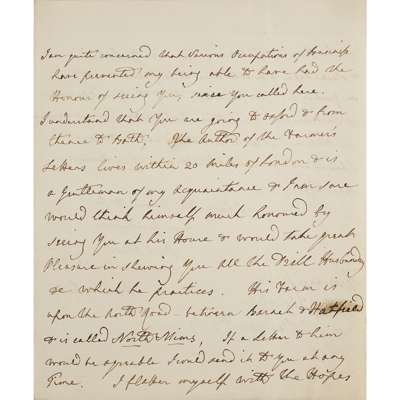 I am quite concerned that various Occupations of Business
have prevented my being able to have had the
Honour of seeing You, since You called here.
I understand that You are going to Oxford & from
thence to Bath. The Author of the Farmers
Letters lives within 20 Miles of London & is
a Gentleman of my Acquaintance & I am sure
would think himself much honoured by
seeing You at his House & would take great
Pleasure in shewing You all the Drill Husbandry
&c which he practices. His Farm is
upon the North Road between Barnet & Hatfield
& is called North Mims, If a Letter to him
would be agreable I would send it to You at any
Time. I flatter myself with the Hopes